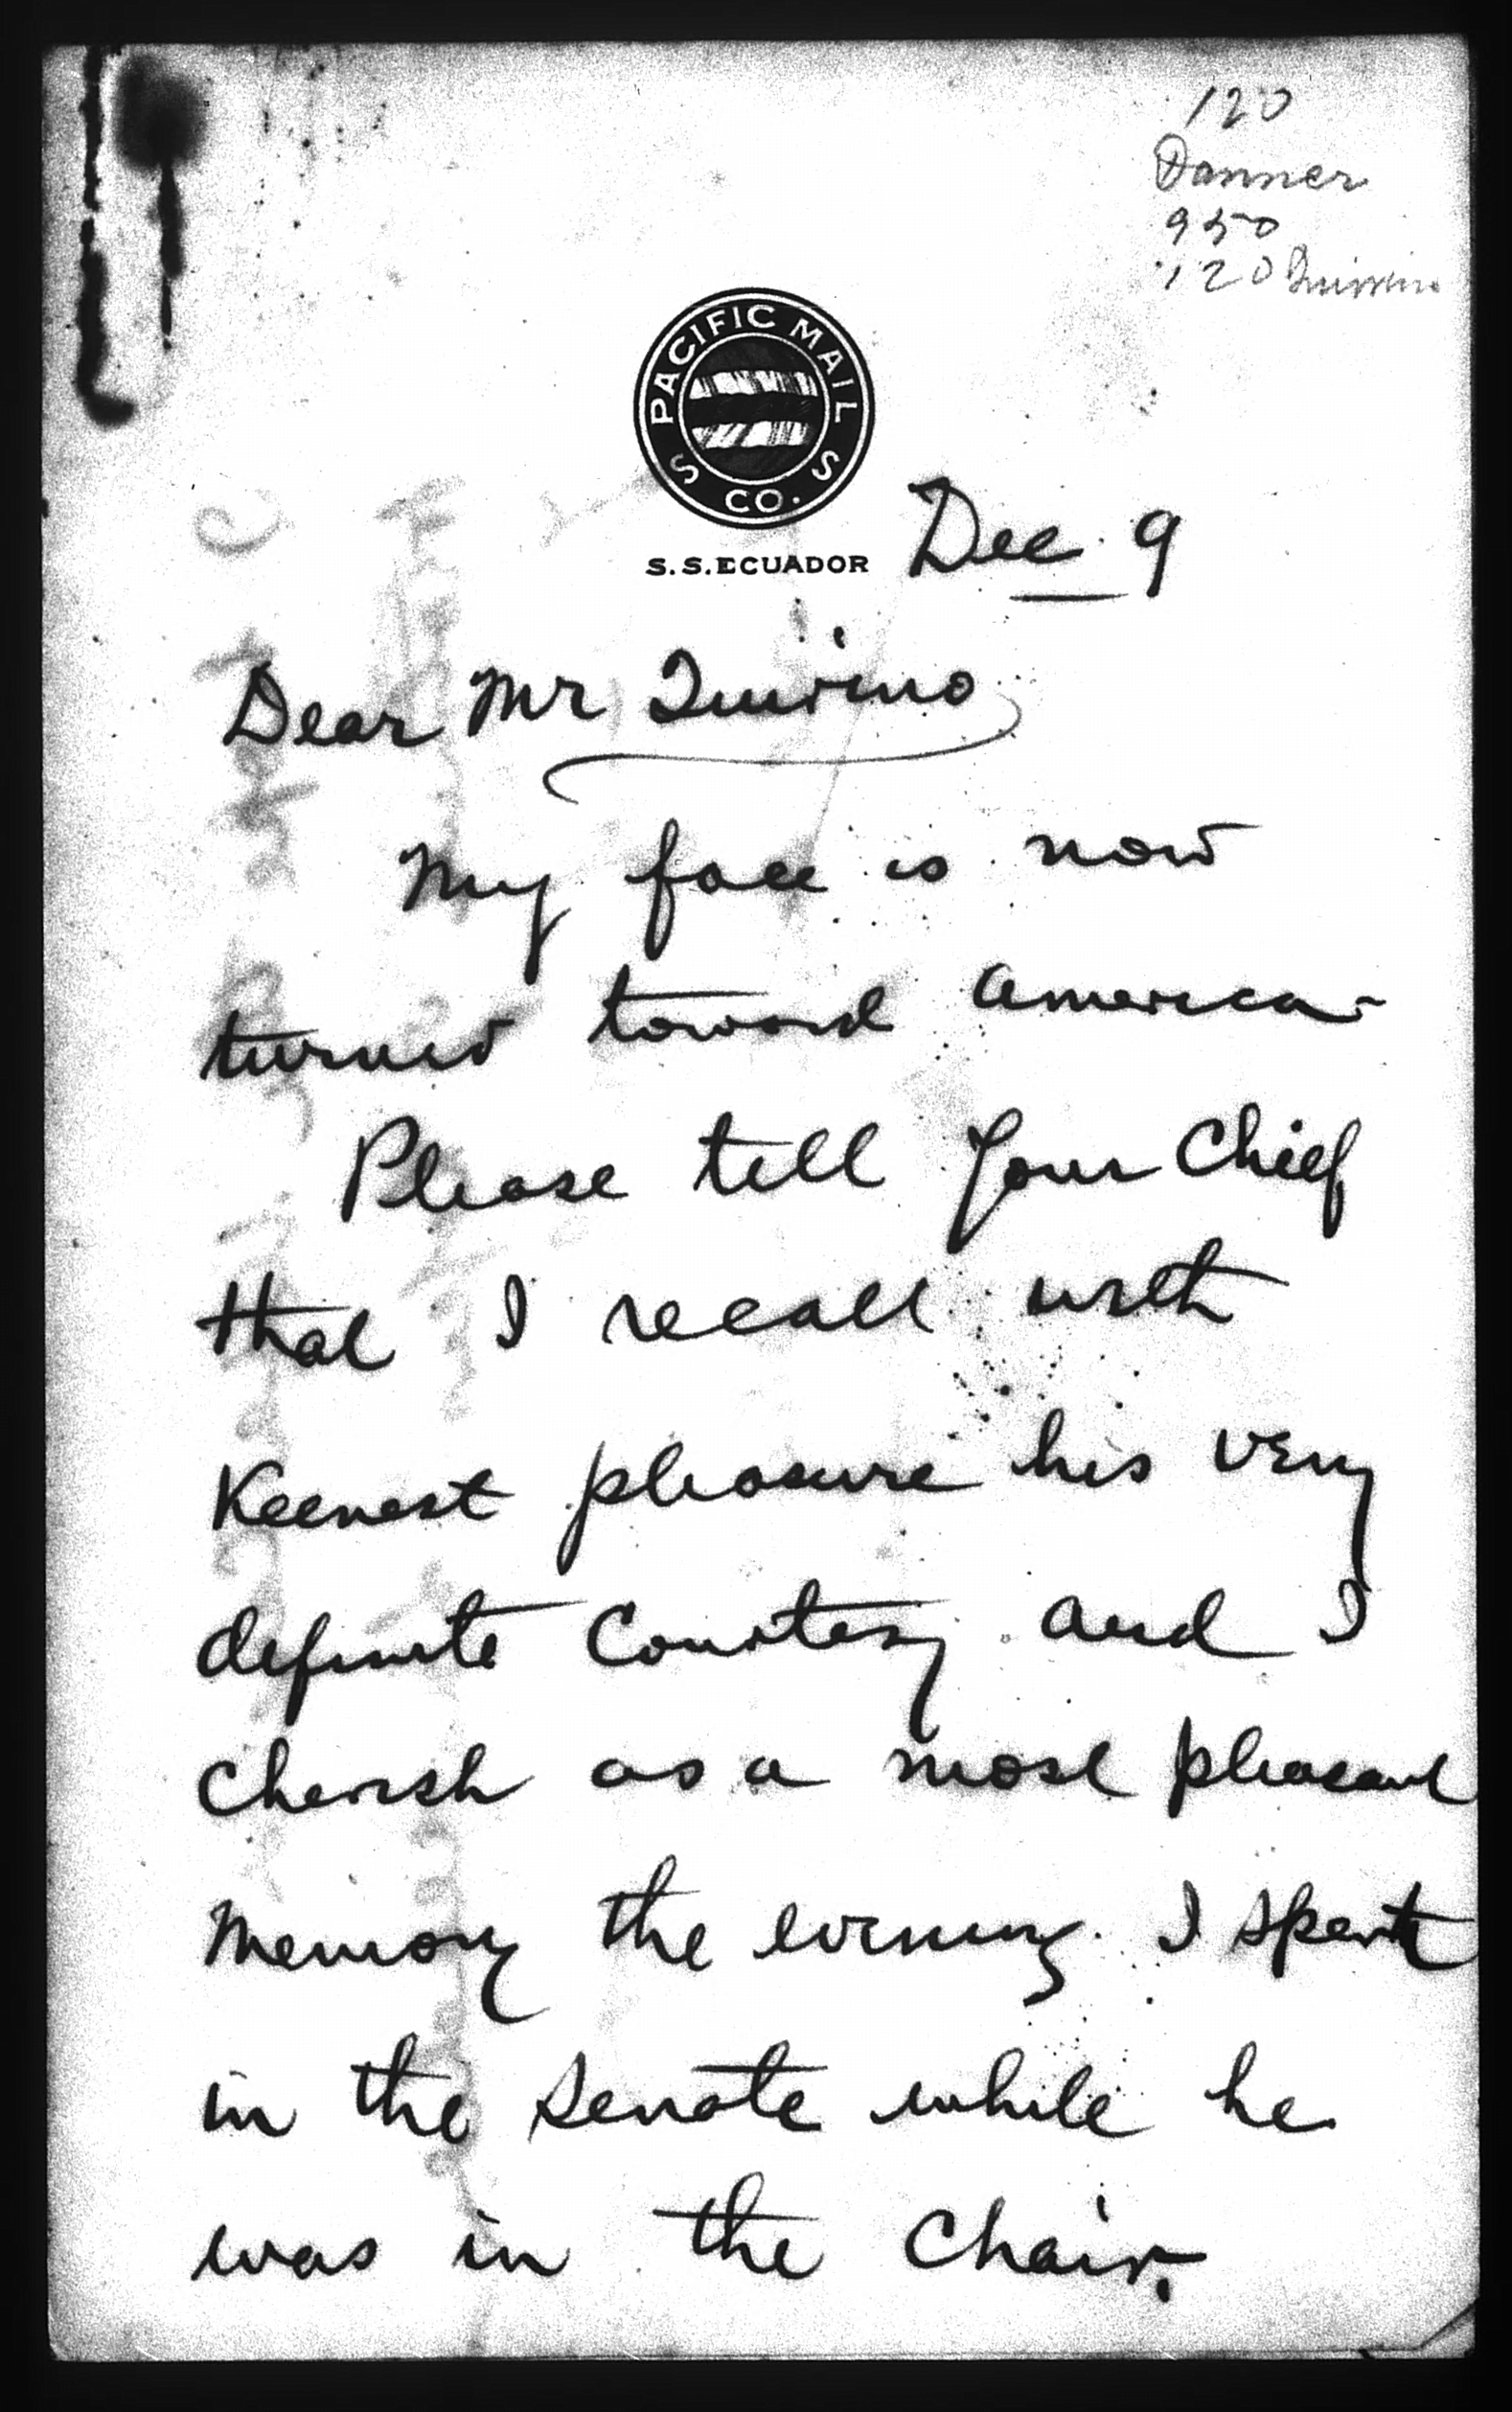 120
Danner
950
120 Quirino
PACIFIC MAIL S S CO.
S.S. ECUADOR
Dec 9
Dear Mr Quirino
My face is now
turned toward America -
Please tell your Chief
that I recall with
Keenest pleasure his very
definite Courtesy and I
cherish as a most pleasant
memory the evening I spent
in the Senate while he
was in the Chair.